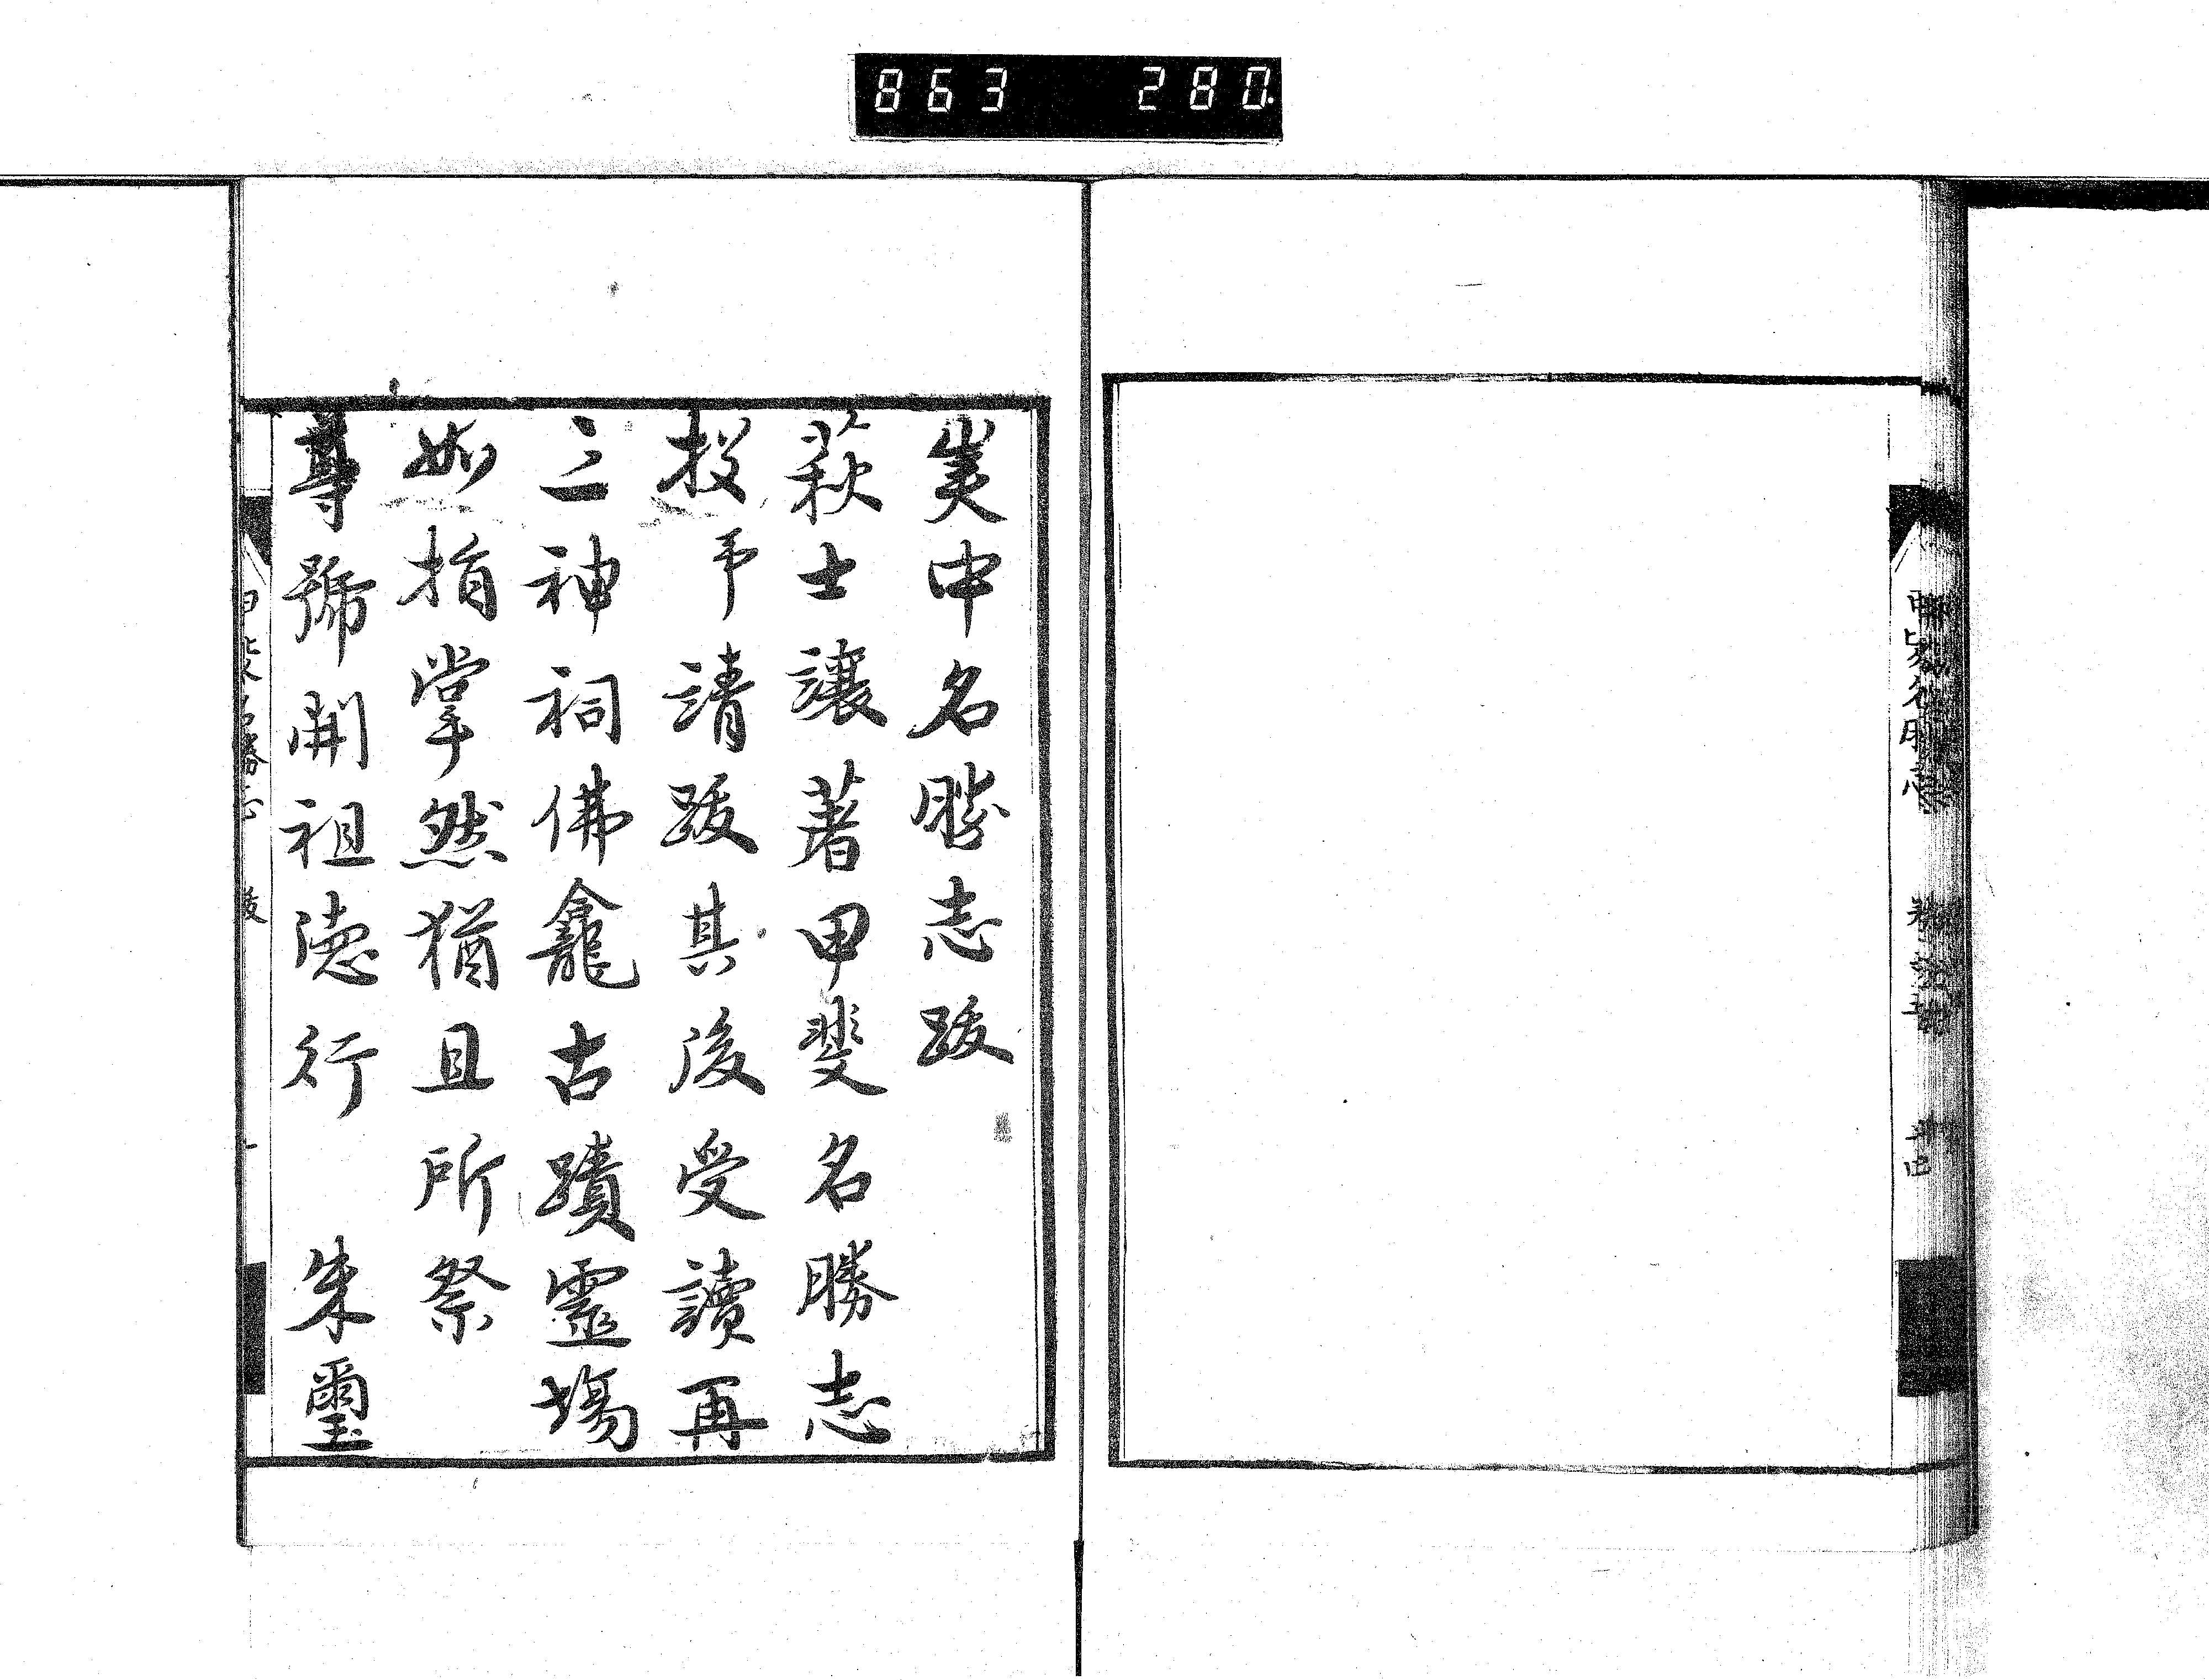 863 280
甲斐名勝志
卷之五
峽中名勝志跋
萩士讓著甲斐名勝志
投予請跋其後受讀再
三神祠佛龕古蹟靈場
如指掌然猶且所祭
尊號開祖德行 朱璽
甲斐名勝志 跋 一